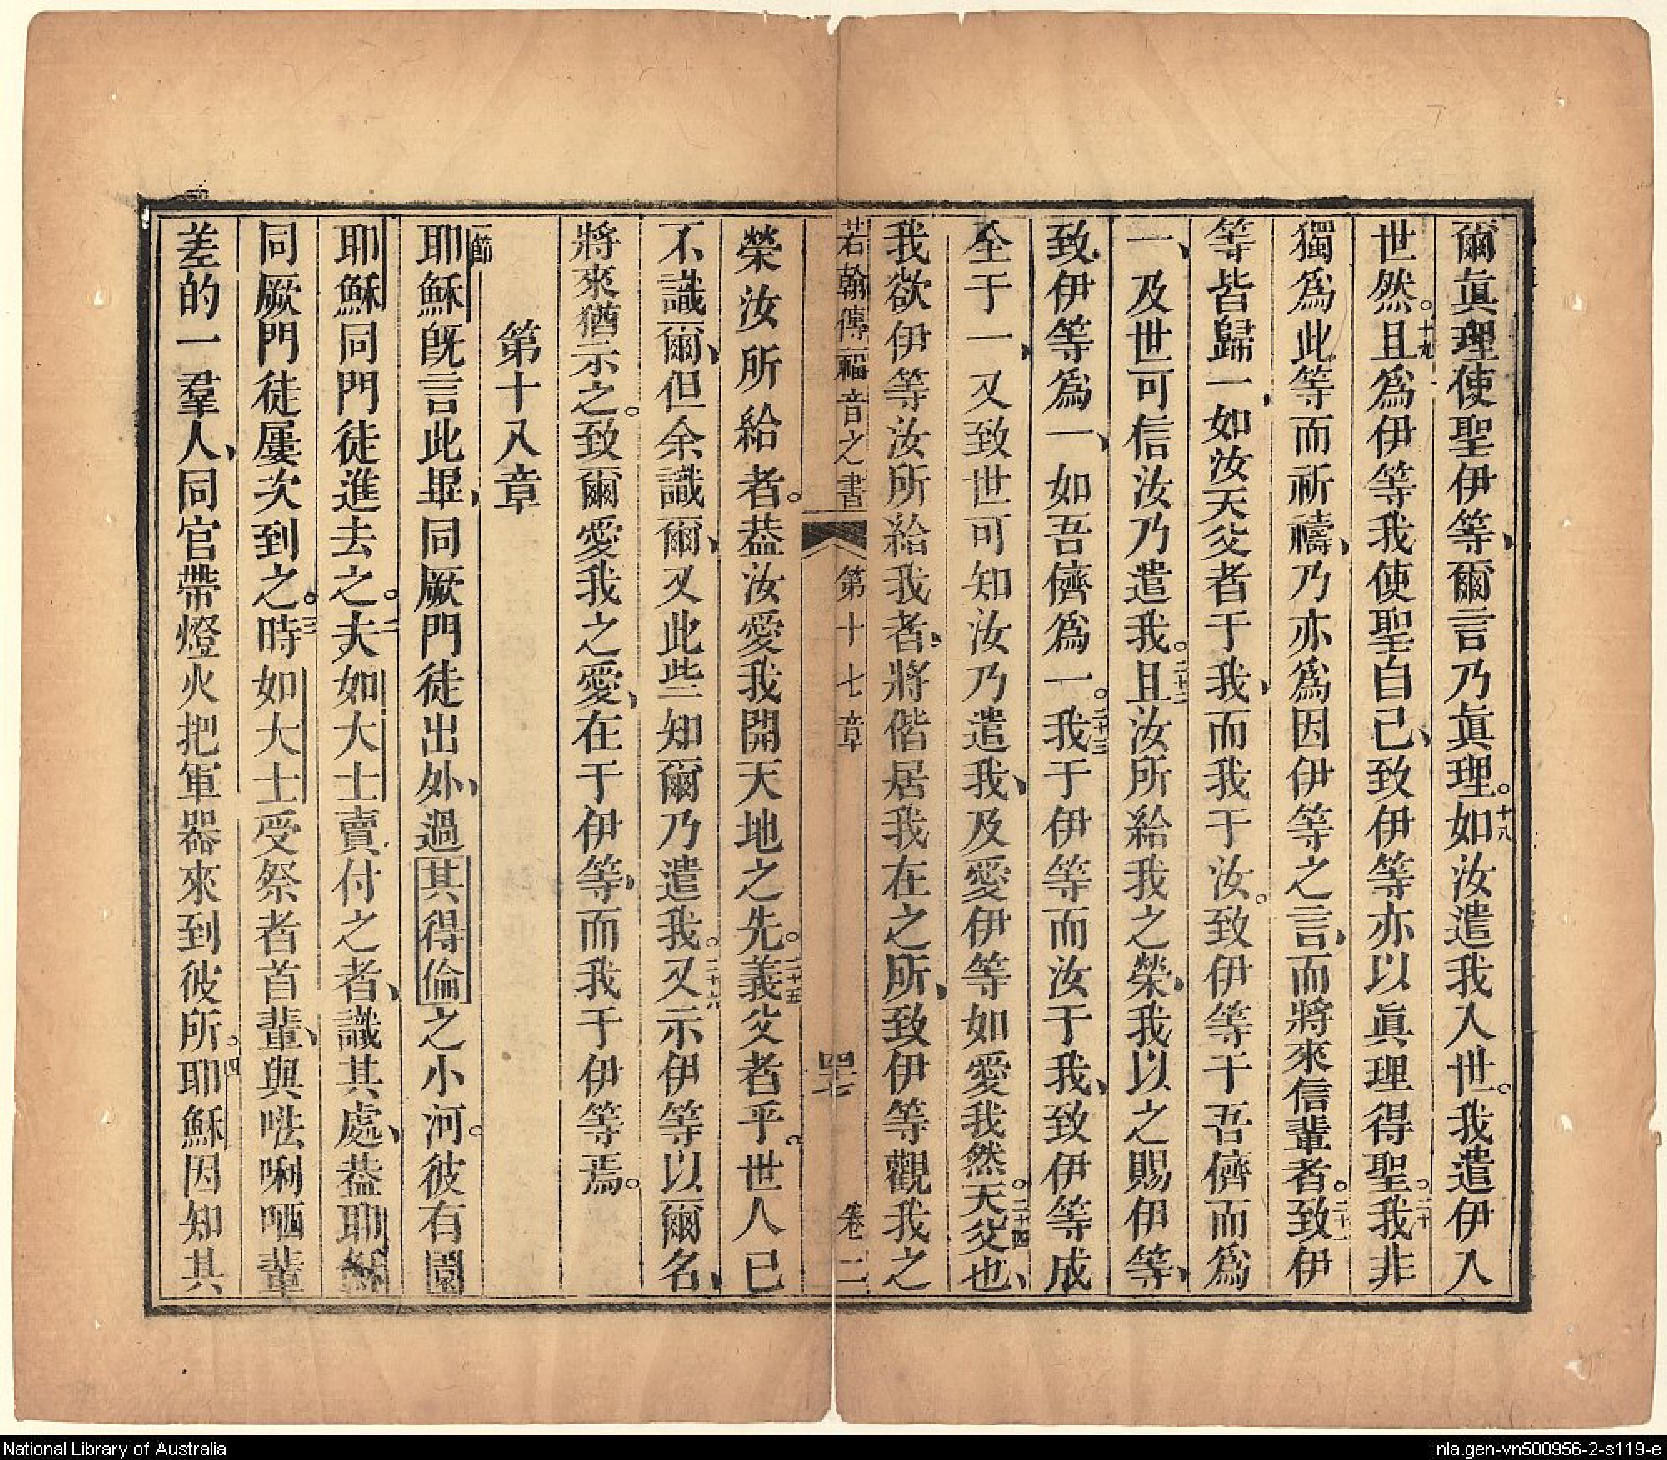 爾眞理使聖伊等、爾言乃眞理。十八如汝遣我入世。我遣伊入
世然。十九且爲伊等我使聖自己、致伊等亦以眞理得聖。二十我非
獨爲此等而祈禱、乃亦爲因伊等之言、而將來信輩者。二十一致伊
等皆歸一、如汝天父者于我、而我于汝。致伊等于吾儕而爲
一、及世可信汝乃遣我。二十二且汝所給我之榮、我以之賜伊等、
致伊等爲一、如吾儕爲一。二十三我于伊等而汝于我、致伊等成
全于一、又致世可知汝乃遣我、及愛伊等如愛我然。二十四天父也、
我欲伊等汝所給我者、將偕居我在之所、致伊等觀我之
若翰傳福音之書 第十七章 四七 卷二
榮汝所給者。葢汝愛我開天地之先。二十五義父者乎。世人已
不識爾、但余識爾、又此些知爾乃遣我。二十六又示伊等以爾名、
將來猶示之。致爾愛我之愛、在于伊等、而我于伊等焉。
第十八章
一節耶穌旣言此畢、同厥門徒出外、過其得倫之小河。彼有園
耶穌同門徒進去之。二夫如大士賣付之者、識其處、葢耶穌
同厥門徒屢次到之。三時如大士受祭者首輩、與𠵽唎哂輩
差的一羣人、同官帶燈火把軍器來到彼所。四耶穌因知其
National Library of Australia
nla.gen-vn500956-2-s119-e